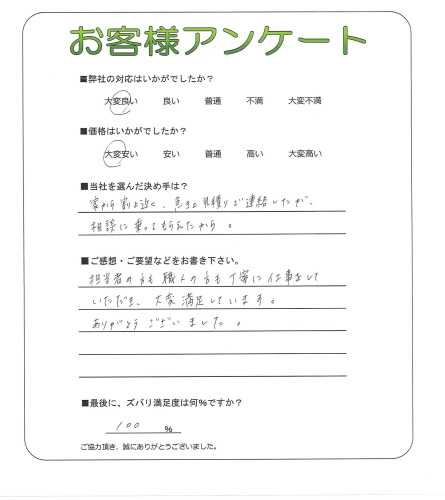 お客様アンケート
■弊社の対応はいかがでしたか？
大変良い 良い 普通 不満 大変不満
■価格はいかがでしたか？
大変安い 安い 普通 高い 大変高い
■当社を選んだ決め手は？
家から割と近く、急な見積りご連絡したが、
相談に乗ってもらえたから。
■ご感想・ご要望などをお書き下さい。
担当者の方も職人の方も丁寧に仕事をして
いただき、大変満足しています。
ありがとうございました。
■最後に、ズバリ満足度は何%ですか？
100 %
ご協力頂き、誠にありがとうございました。